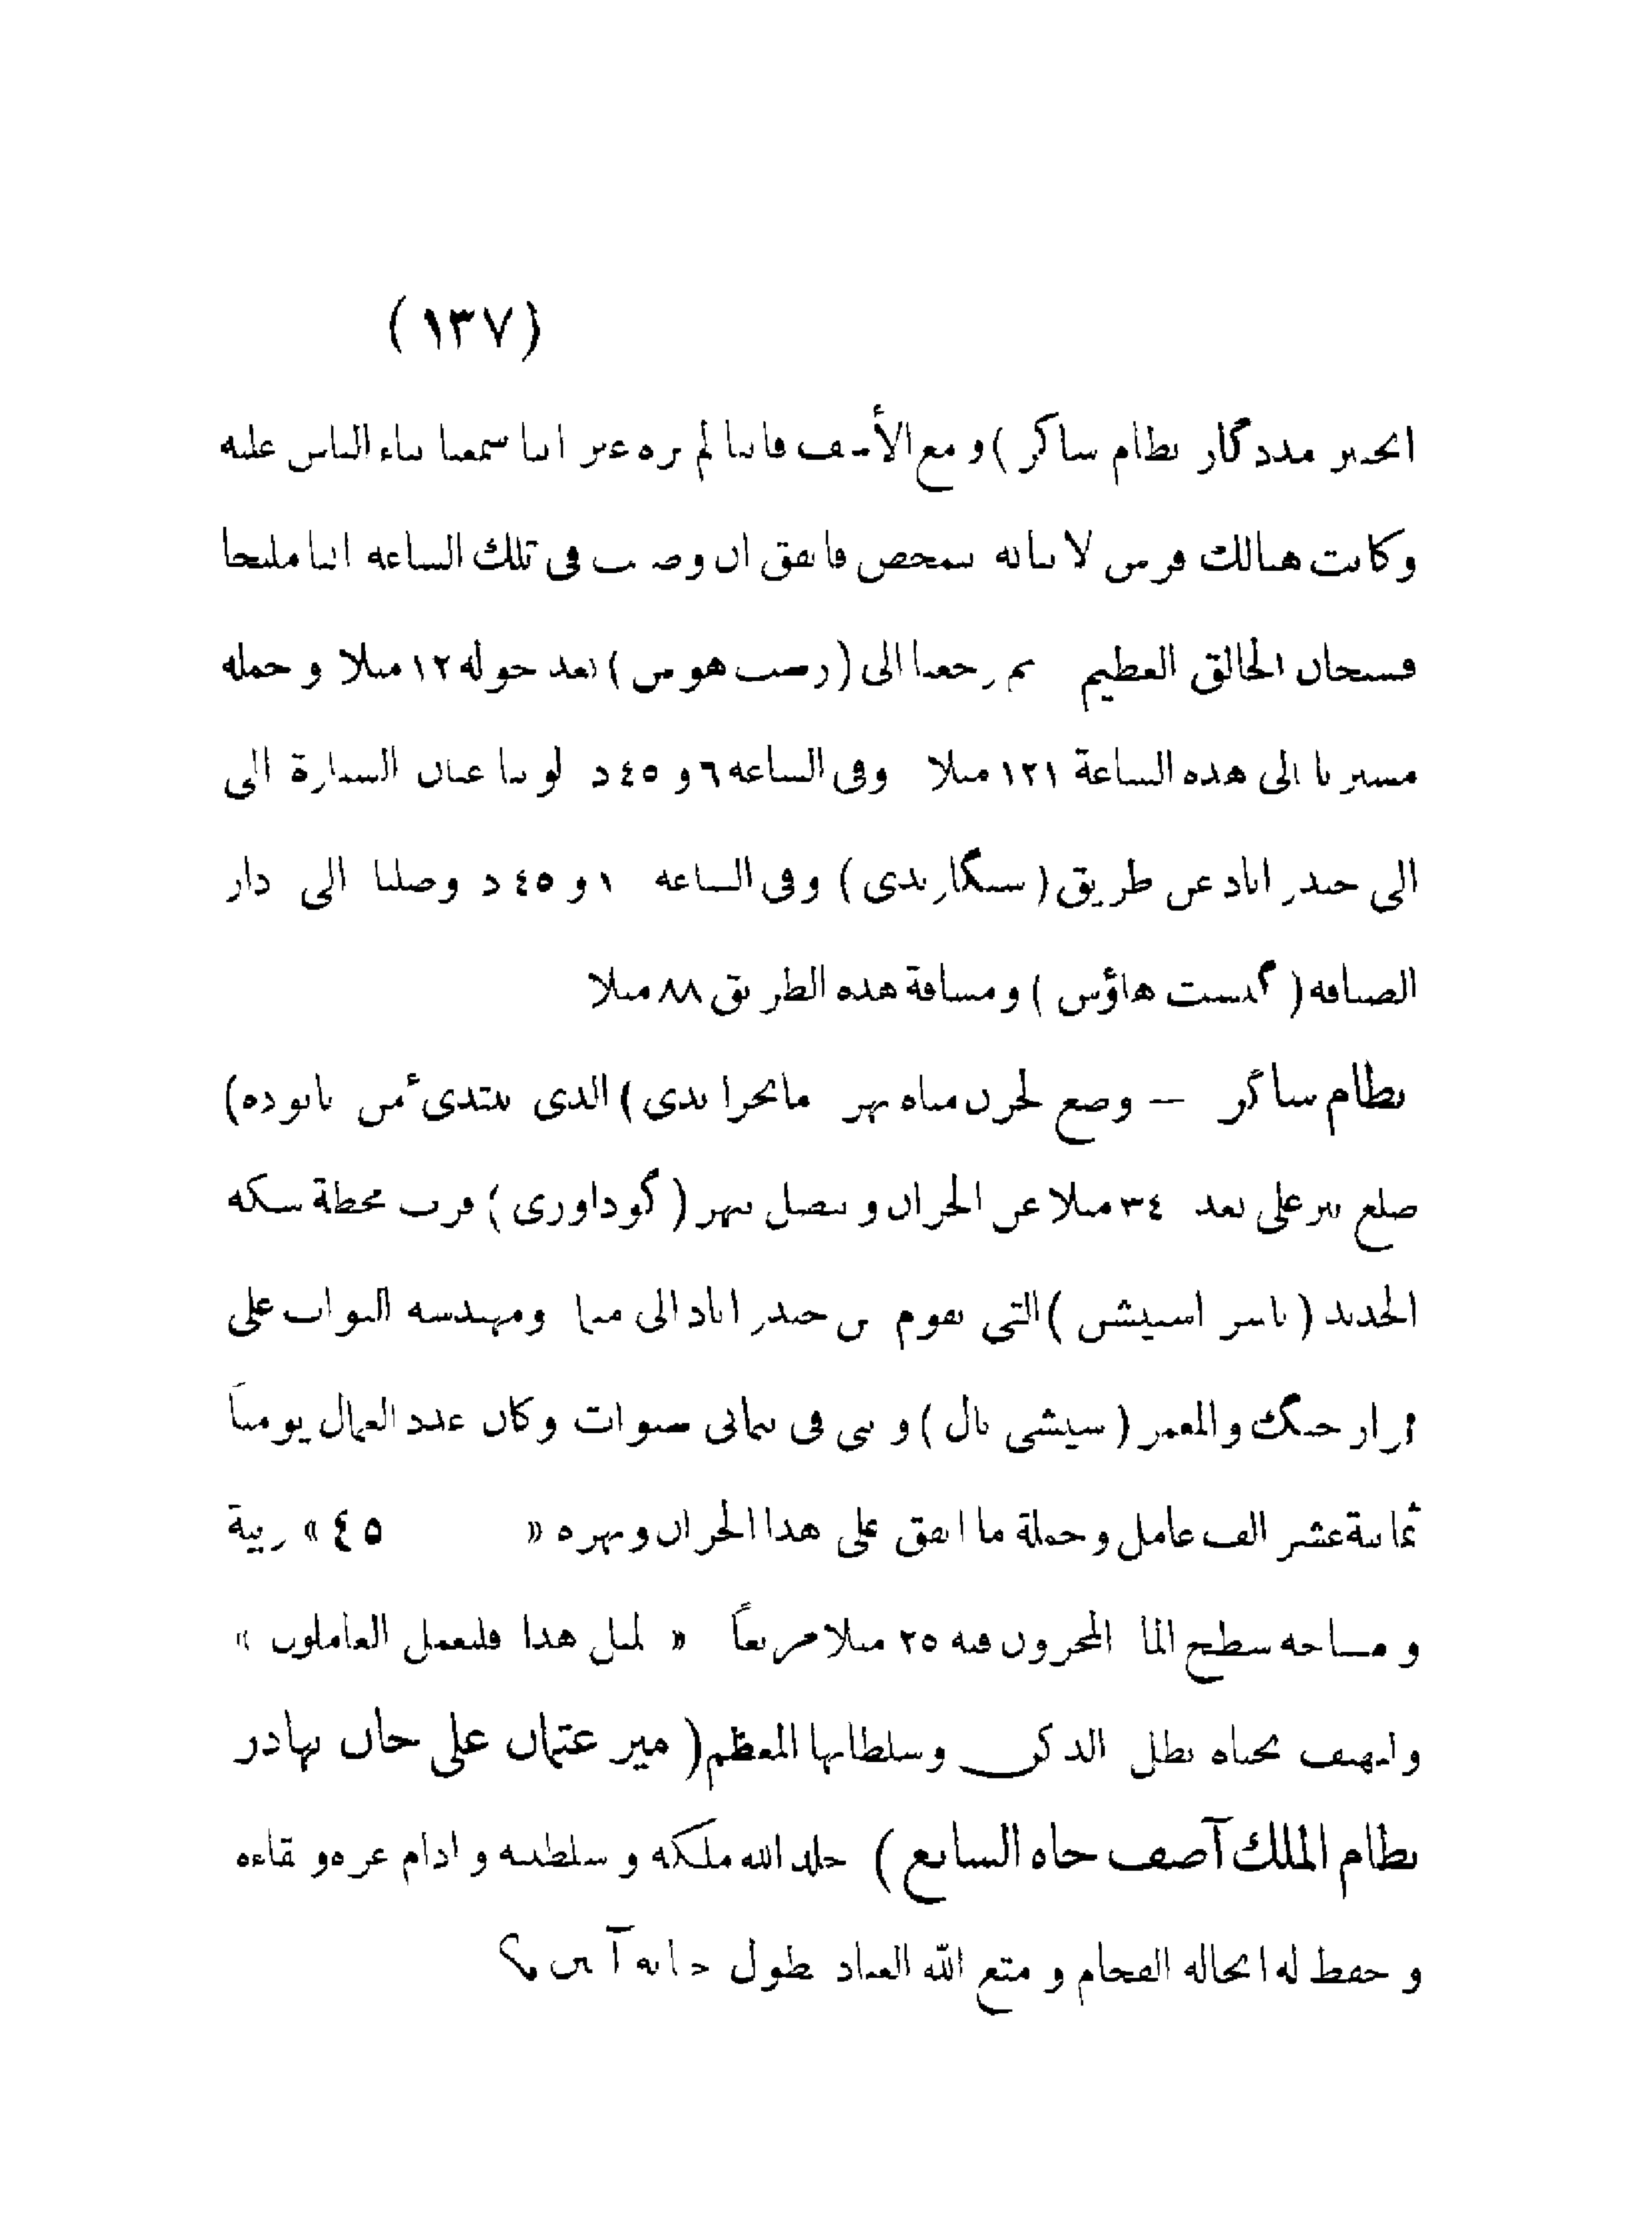 (١٣٧)
انجنير مددگار نظام ساگر) و مع الأسف فاننا لم نره غير اننا سمعنا ثناء الناس عليه
وكانت هنالك فرس لا بأنه تمخض فاتفق ان وضعت فى تلك الساعه ابنا مليحا
فسبحان الخالق العظيم ثم رجعنا الى (رست هوس) بعد جولة ١٢ ميلا و جمله
مسيرنا الى هذه الساعة ١٢١ ميلا وفى الساعه ٦ و ٤٥ د لوينا عنان السيارة الى
الى حيدر اباد عن طريق (سنگاريدى) وفى الساعه ١ و ٤٥ د وصلنا الى دار
الضيافه (گيست هاؤس) ومسافة هذه الطريق ٨٨ ميلا
نظام ساگر — وضع لخزن مياه نهر مانجرا ندى) الذى يبتدىء من بالوده)
ضلع بير على بعد ٣٤ ميلا عن الخزان و يتصل بنهر (گوداورى) قرب محطة سكه
الحديد (باسر اسٹيشن) التى تقوم من حيدر اباد الى منما ومهندسه النواب على
نواز جنگ والمعمر (سيٹشى بال) و بنى فى ثمانى سنوات وكان عدد العمال يومياً
ثمانية عشر الف عامل وجملة ما انفق على هذا الخزان ونهره « ٤٥ » ربية
و مساحه سطح الما المخزون فيه ٢٥ ميلا مربعاً « لمثل هذا فليعمل العاملون »
ولنهتف بحياه بطل الدكن وسلطانها المعظم (مير عثمان على خان بهادر
نظام الملك آصف جاه السابع) خلد الله ملكه و سلطنته و ادام عزه و بقاءه
و حفظ له انجاله الفخام و متع الله العباد بطول حياته آمين